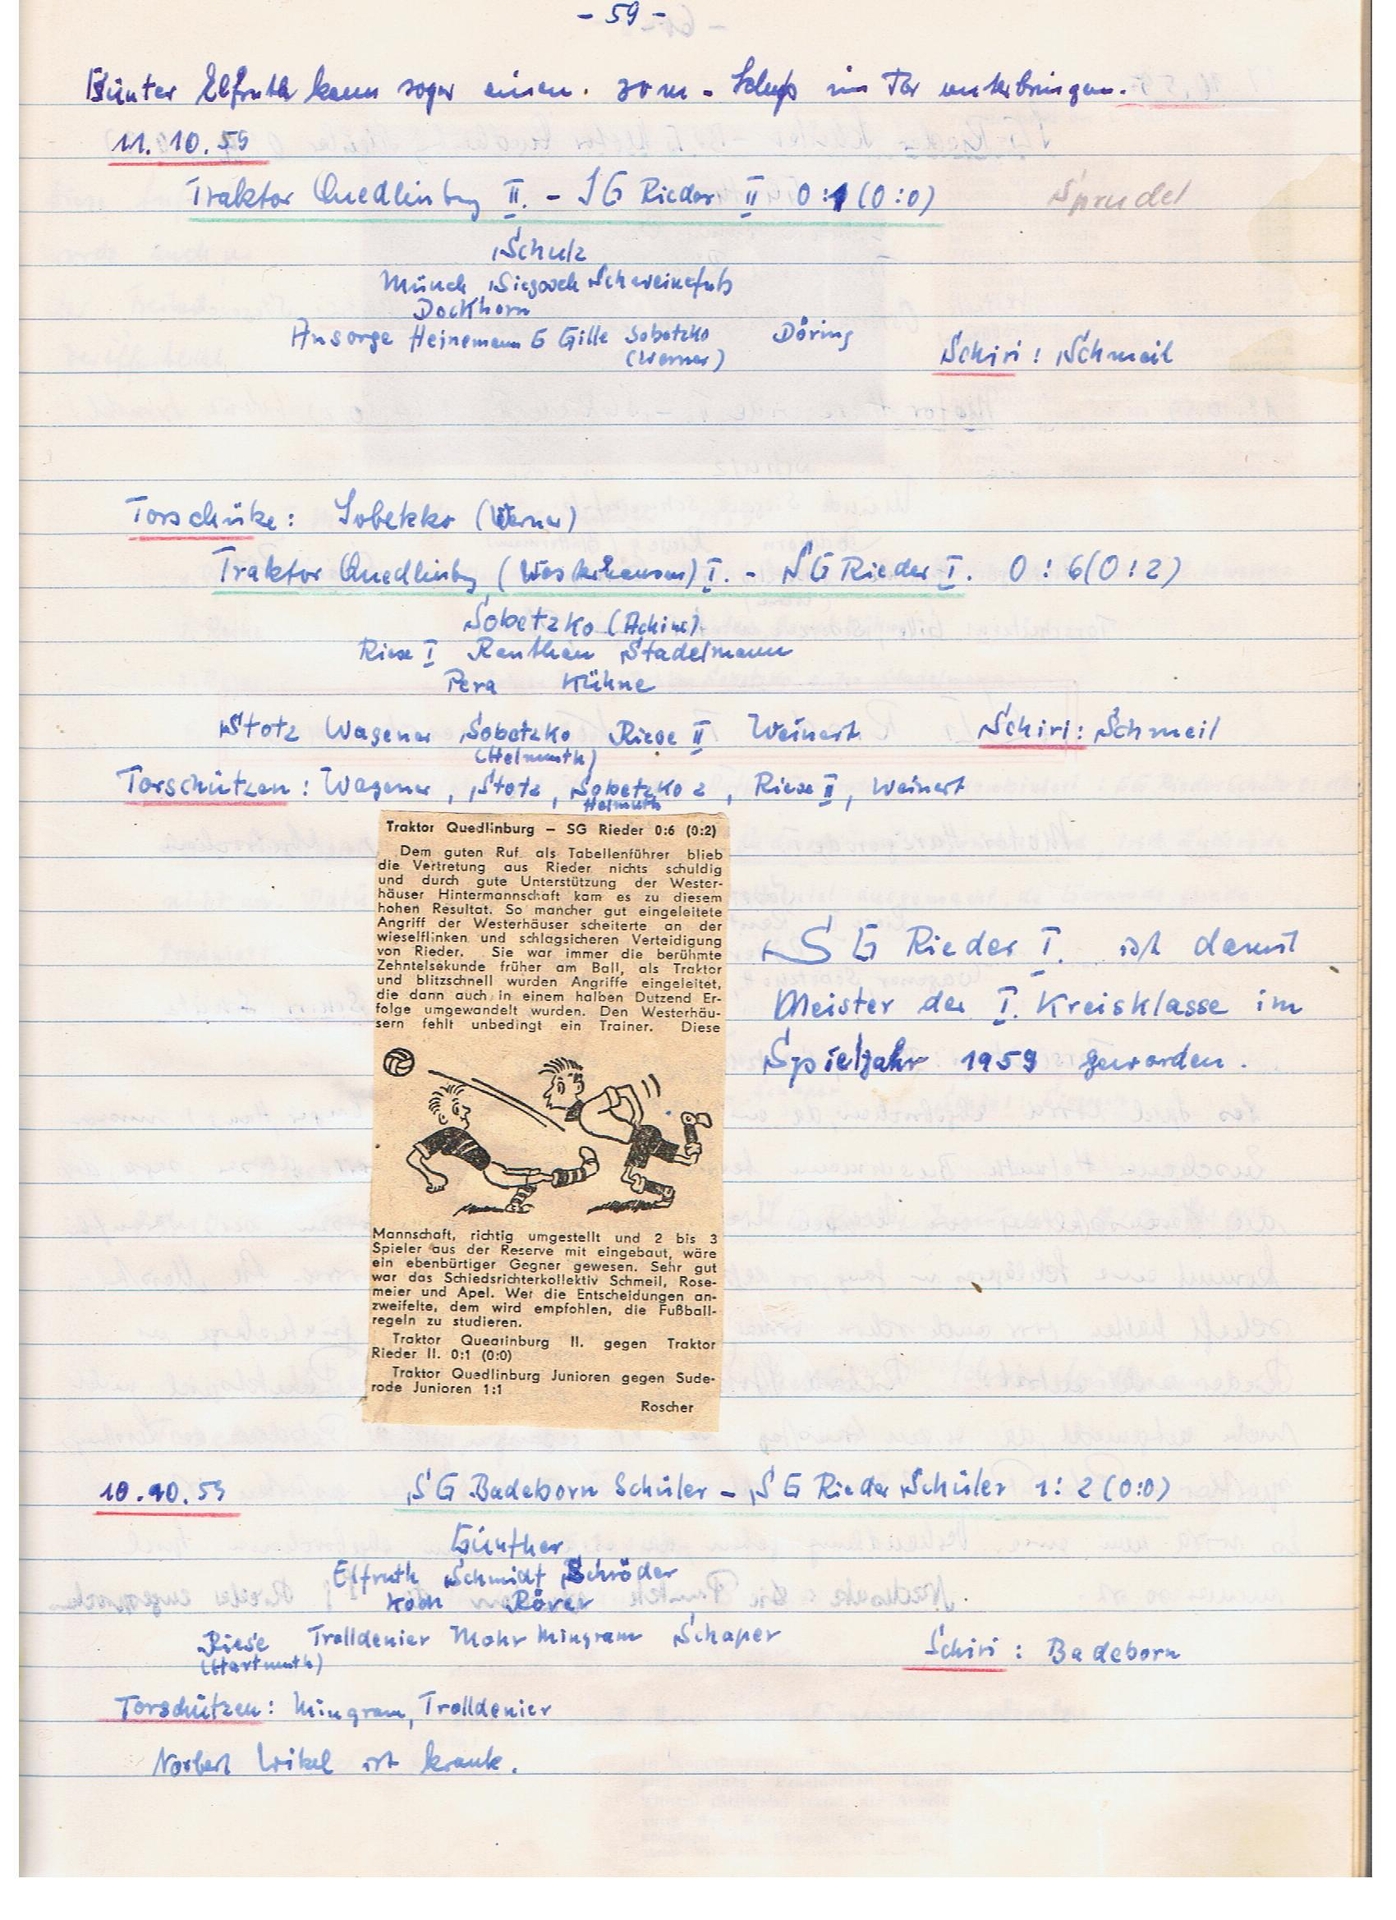 - 59 -
Günter Elfruth kann sogar einen 30 m - Schuß im Tor unterbringen.
11.10.59
Traktor Quedlinburg II. - SG Rieder II 0:1 (0:0)
Sprudel
Schulz
Münch Siegosch Schweinefuß
Dockhorn
Ansorge Heinemann G Gille Sobetzko Döring
(Werner)
Schiri: Schmeil
Torschütze: Sobetzko (Werner)
Traktor Quedlinburg (Westerhausen) I. - SG Rieder I. 0:6 (0:2)
Sobetzko (Achim)
Riese I Renthien Stadelmann
Pera Kühne
Stotz Wagener Sobetzko Riese II Weinert Schiri: Schmeil
(Helmuth)
Torschützen: Wagener, Stotz, Sobetzko 2, Riese II, Weinert
Helmuth
Traktor Quedlinburg — SG Rieder 0:6 (0:2)
Dem guten Ruf als Tabellenführer blieb
die Vertretung aus Rieder nichts schuldig
und durch gute Unterstützung der Wester-
häuser Hintermannschaft kam es zu diesem
hohen Resultat. So mancher gut eingeleitete
Angriff der Westerhäuser scheiterte an der
wieselflinken und schlagsicheren Verteidigung
von Rieder. Sie war immer die berühmte
Zehntelsekunde früher am Ball, als Traktor
und blitzschnell wurden Angriffe eingeleitet,
die dann auch in einem halben Dutzend Er-
folge umgewandelt wurden. Den Westerhäu-
sern fehlt unbedingt ein Trainer. Diese
Mannschaft, richtig umgestellt und 2 bis 3
Spieler aus der Reserve mit eingebaut, wäre
ein ebenbürtiger Gegner gewesen. Sehr gut
war das Schiedsrichterkollektiv Schmeil, Rose-
meier und Apel. Wer die Entscheidungen an-
zweifelte, dem wird empfohlen, die Fußball-
regeln zu studieren.
Traktor Quedlinburg II. gegen Traktor
Rieder II. 0:1 (0:0)
Traktor Quedlinburg Junioren gegen Sude-
rode Junioren 1:1
Roscher
SG Rieder I. ist damit
Meister der I. Kreisklasse im
Spieljahr 1959 geworden.
10.10.59
SG Badeborn Schüler - SG Rieder Schüler 1:2 (0:0)
Günther
Elfruth Schmidt Schröder
Koch Röver
Riese Trolldenier Mohr Mingram Schaper
(Hartmuth)
Schiri: Badeborn
Torschützen: Mingram, Trolldenier
Norbert ist krank.